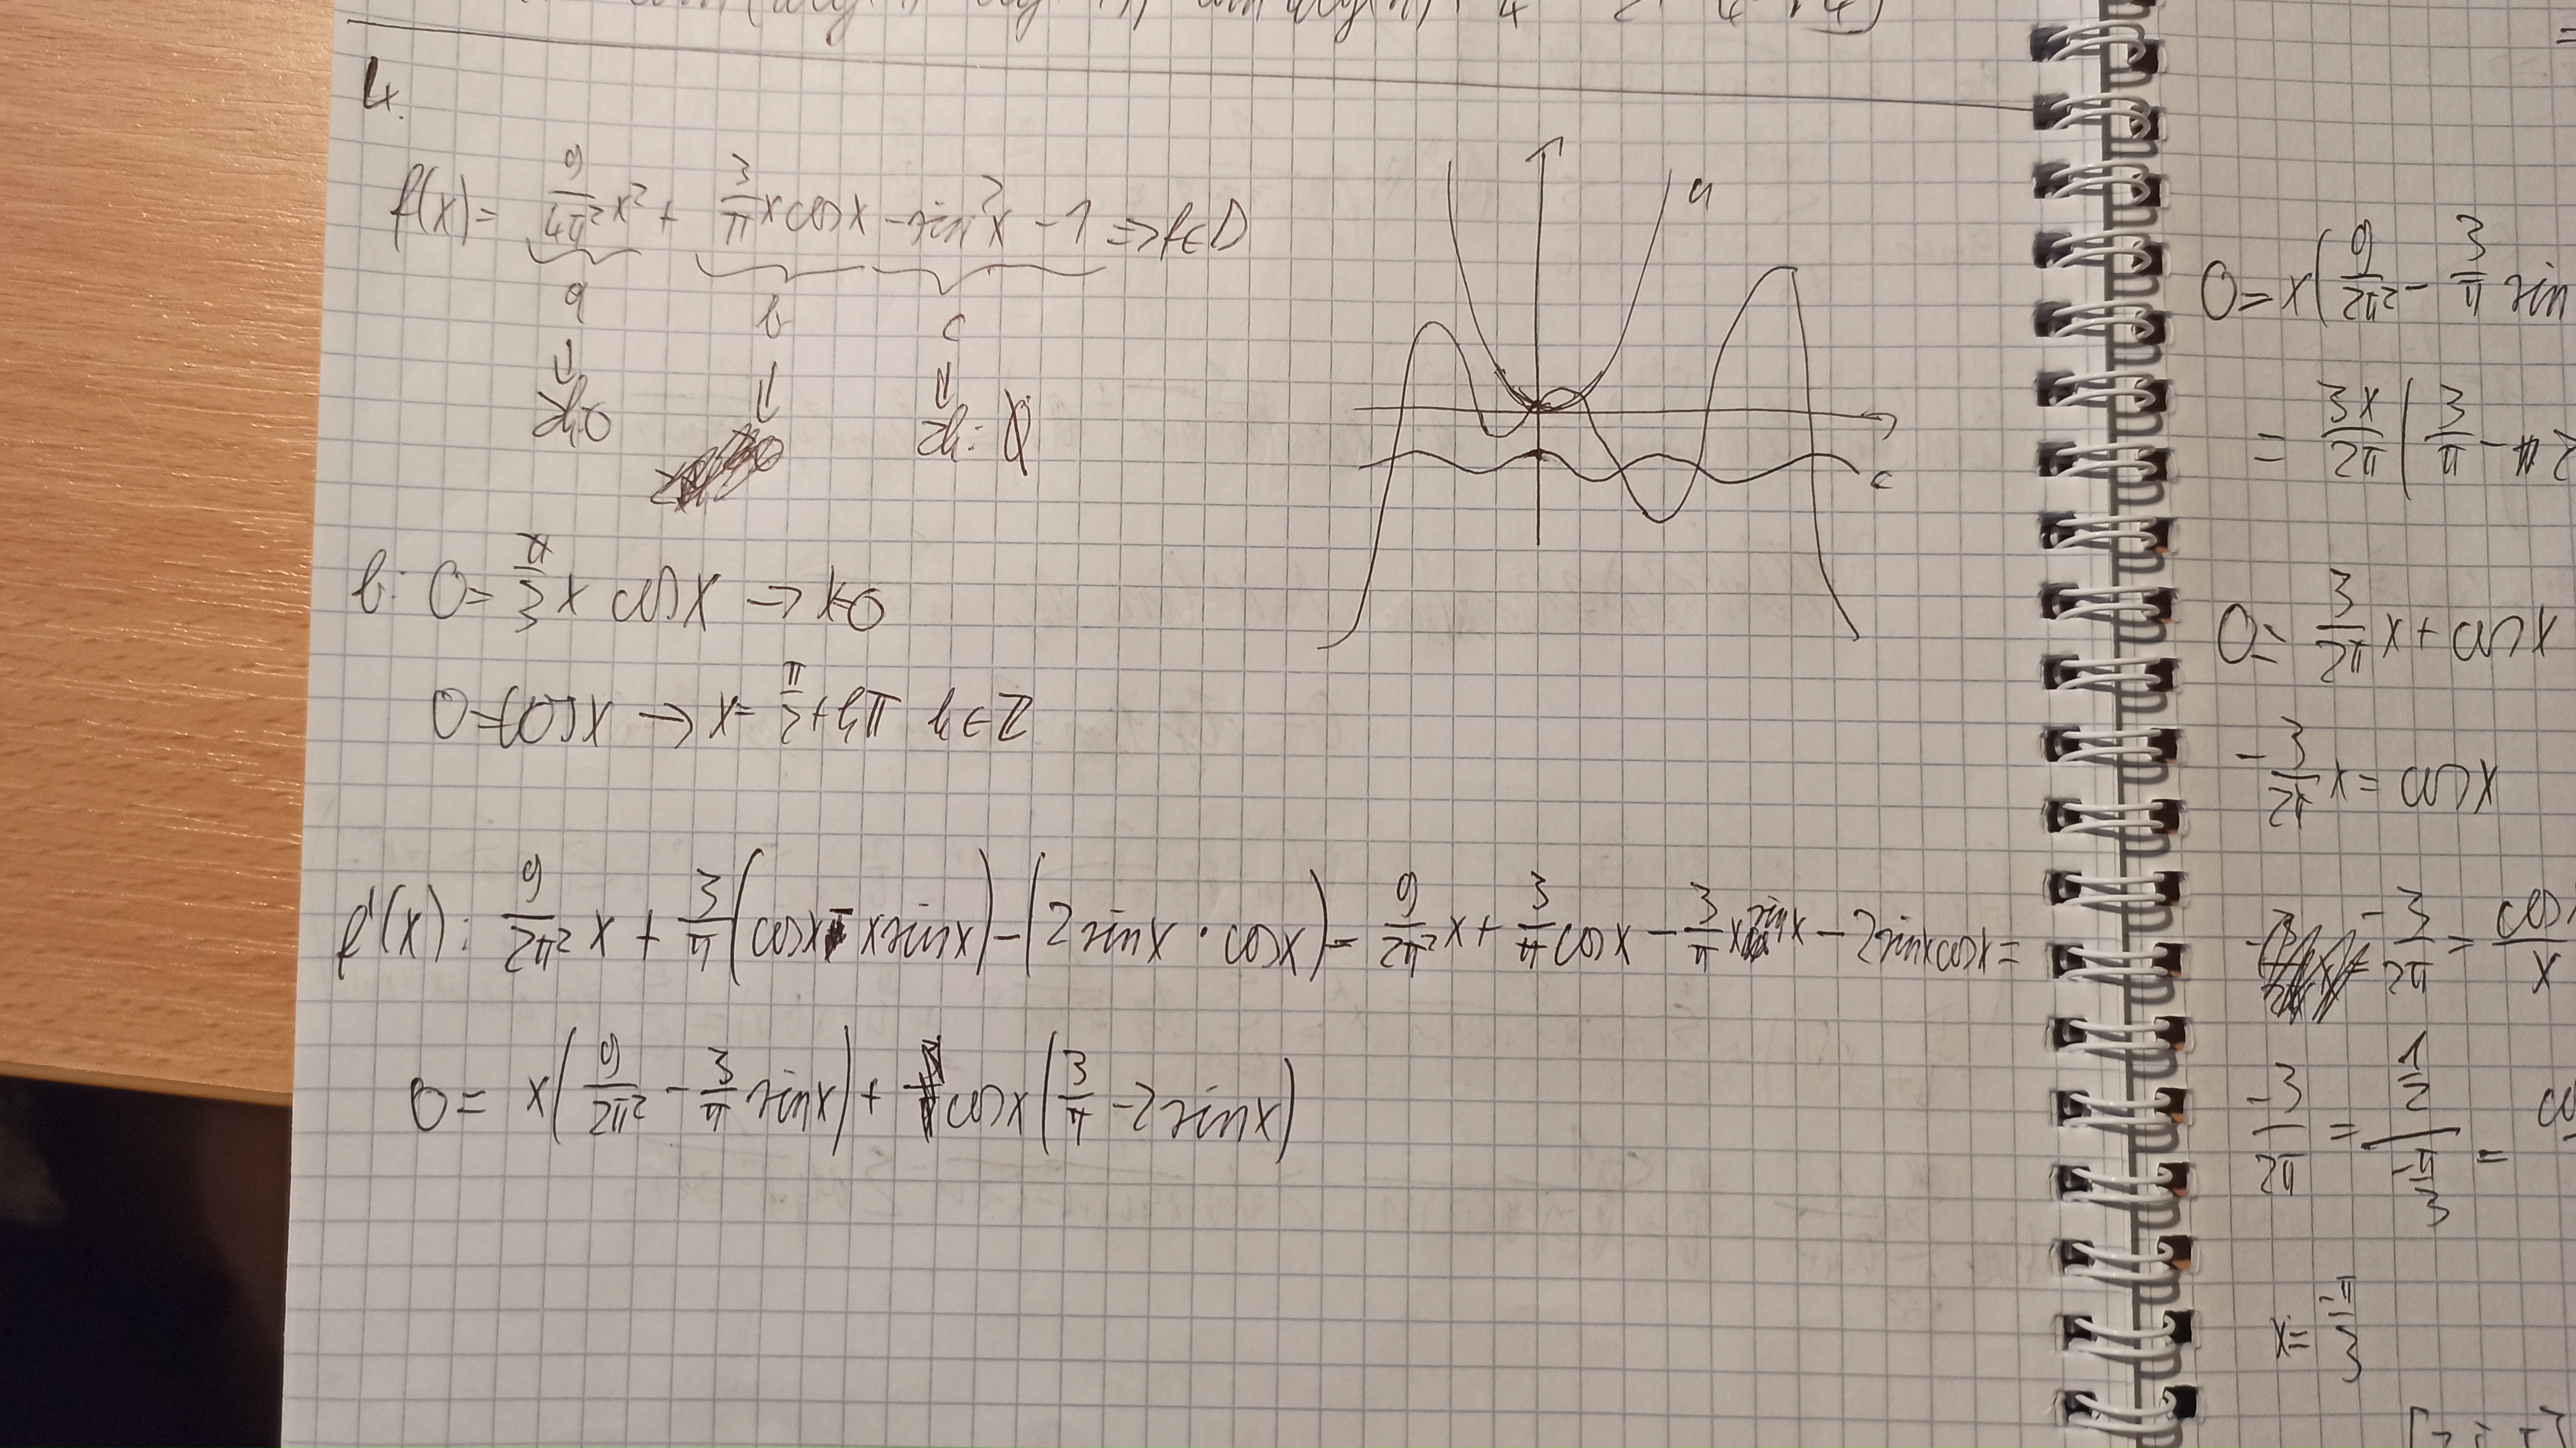 4.
f(x) = 9/4π² x² + 3/π x cos x - sin² x - 1 => f ∈ D
a b c
zh: 0 zh: ∅
a
c
b: 0 = π/3 x cos x → x=0
0 = cos x → x = π/2 + kπ k ∈ Z
f'(x): 9/2π² x + 3/π (cos x - x sin x) - (2 sin x · cos x) = 9/2π² x + 3/π cos x - 3/π x sin x - 2 sin x cos x =
0 = x(9/2π² - 3/π sin x) + cos x (3/π - 2 sin x)
0 = x(9/2π² - 3/π sin
= 3x/2π (3/π -
0 = 3/2π x + cos x
-3/2π x = cos x
-3/2π = cos/x
-3/2π =
x =